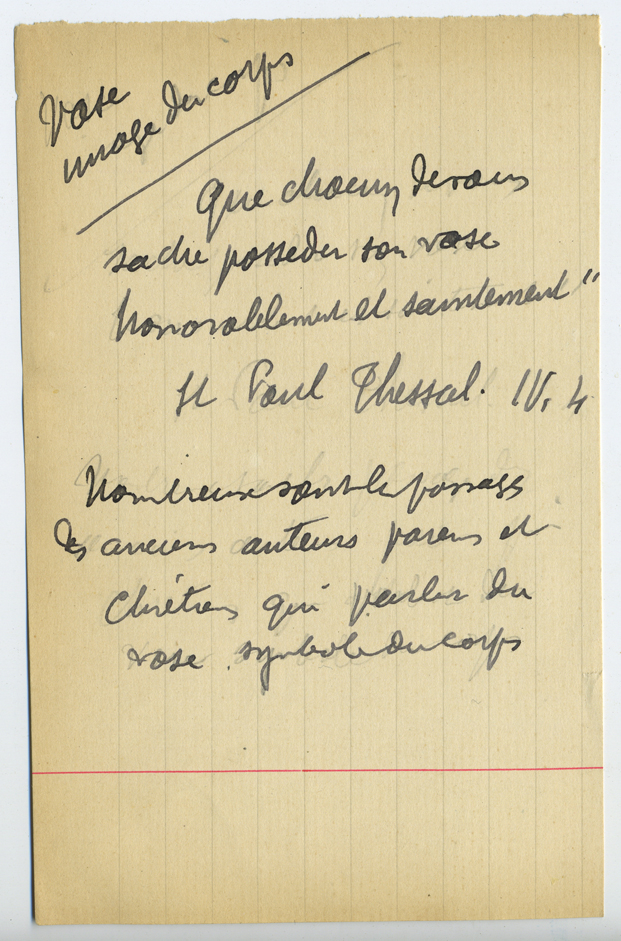 Vase
image du corps
Que chacun de vous
sache posseder son vase
honorablement et saintement"
St Paul Thessal. IV, 4
Nombreux sont les passages
des anciens auteurs paiens et
Chrétiens qui parlent du
vase symbole du corps